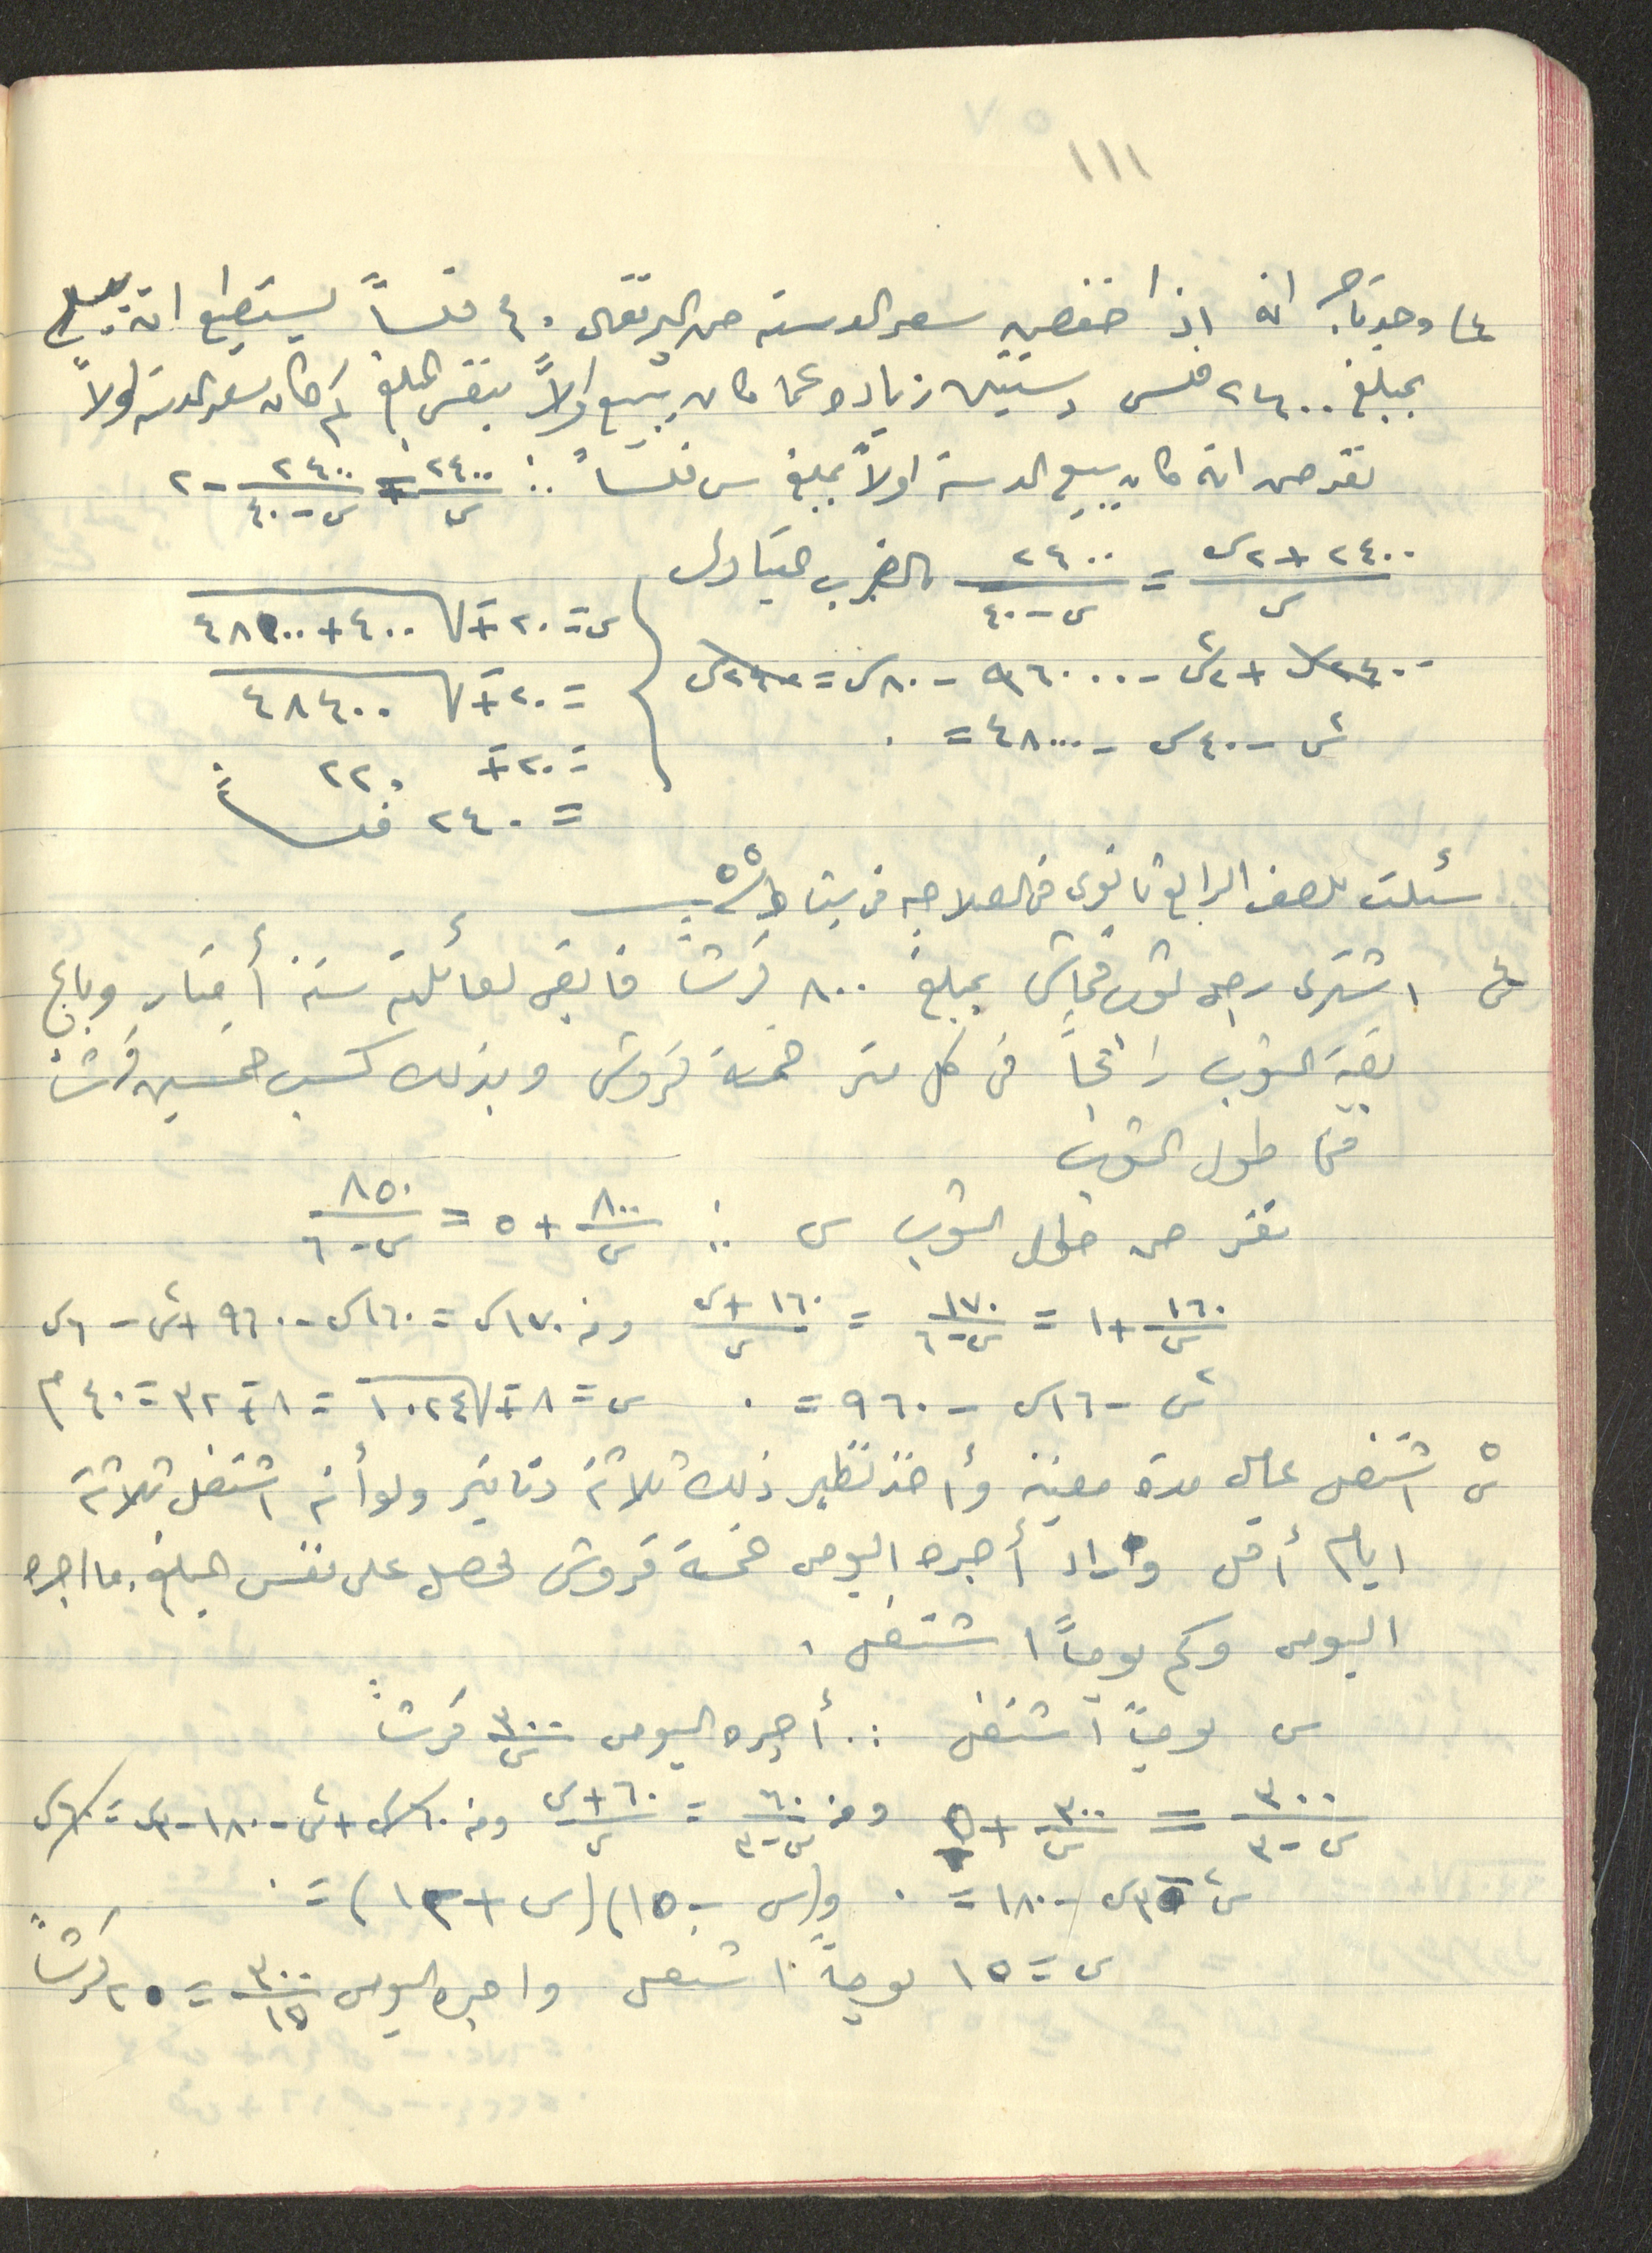 ١١١
وجد تاجر انه اذا خفض سعر الدستة من البرتقال ٤٠ فلساً يستطيع ان يبيع
بمبلغ ٢٤٠٠ فلس دستتين زيادة عما كان يبيع اولاً بنفس المبلغ كم كان سعر الدستة اولاً
نفرض انه كان يبيع الدستة اولاً بمبلغ س فلساً ∴ ٢٤٠٠/س = ٢٤٠٠/(س-٤٠) - ٢
(٢٤٠٠+٢س)/س = ٢٤٠٠/(س-٤٠) بالضرب المتبادل
٢٤٠٠س + ٢س٢ - ٩٦٠٠٠ - ٨٠س = ٢٤٠٠س
س٢ - ٤٠س - ٤٨٠٠٠ = ٠
س = ٢٠ ± √(٤٠٠+٤٨٠٠٠)
= ٢٠ ± √٤٨٤٠٠
= ٢٠ ± ٢٢٠
= ٢٤٠ فلساً
سئلت للصف الرابع ثانوي في
اشترى رجل ثوب قماش بمبلغ ٨٠٠ قرشاً فابقى لعائلته ستة أمتار وباع
بقية الثوب رابحاً في كل متر خمسة قروش وبذلك كسب خمسين قرشاً
فما طول الثوب
نفرض طول الثوب س ∴ ٨٠٠/س + ٥ = ٨٥٠/(س-٦)
١٦٠/س + ١ = ١٧٠/(س-٦) = (١٦٠+س)/س ومنه ١٧٠س = ١٦٠س - ٩٦٠ + س٢ - ٦س
س٢ - ١٦س - ٩٦٠ = ٠ س = ٨ ± √١٠٢٤ = ٨ ± ٣٢ = ٤٠ م
اشتغل عامل مدة معينة وأخذ نظير ذلك ثلاثة دنانير ولو أنه اشتغل ثلاثة
ايام أقل وزاد أجره اليومي خمسة قروش لحصل على نفس المبلغ. ما اجره
اليومي وكم يوماً اشتغل.
س يوماً اشتغل ∴ أجره اليومي ٣٠٠/س قرشاً
٣٠٠/(س-٣) = ٣٠٠/س + ٥ ومنه ٦٠/(س-٣) = (٦٠+س)/س ومنه ٦٠س + س٢ - ١٨٠ - ٣س = ٦٠س
س٢ - ٣س - ١٨٠ = ٠ و(س - ١٥)(س + ١٢) = ٠
س = ١٥ يوماً اشتغل واجره اليومي ٣٠٠/١٥ = ٢٠ قرشاً